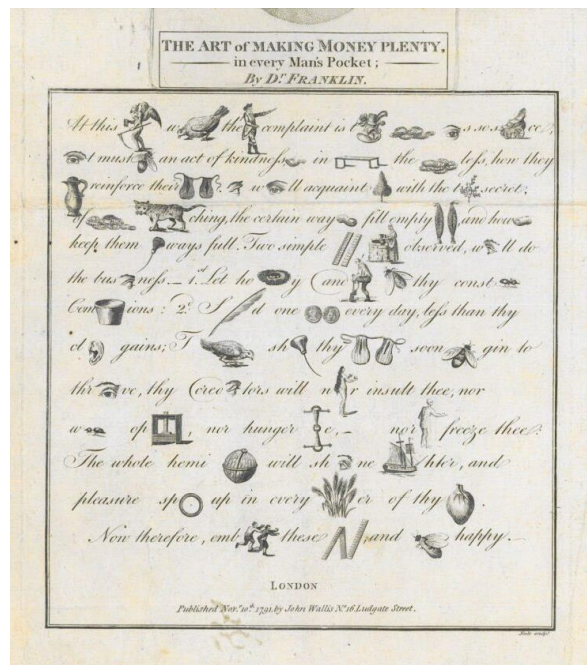 THE ART of MAKING MONEY PLENTY,
in every Man's Pocket;
By Dr. FRANKLIN.
At this w the complaint is t s so s ce;
t must an act of kindness in the less, how they
reinforce their ; w ll acquaint with the t secret;
of ching, the certain way fill empty and how
keep them ways full. Two simple observed, w ll do
the bus ness. 1st. Let ho y and thy const
Com ions: 2d. S d one every day, less than thy
cl gains; T sh thy soon gin to
thr ve, thy Cred tors will n r insult thee, nor
w op , nor hunger e, nor freeze thee:
The whole hemi will sh ne hter, and
pleasure sp up in every er of thy .
Now therefore, emb these , and happy.
LONDON
Published Novr. 10th. 1791, by John Wallis No. 16 Ludgate Street.